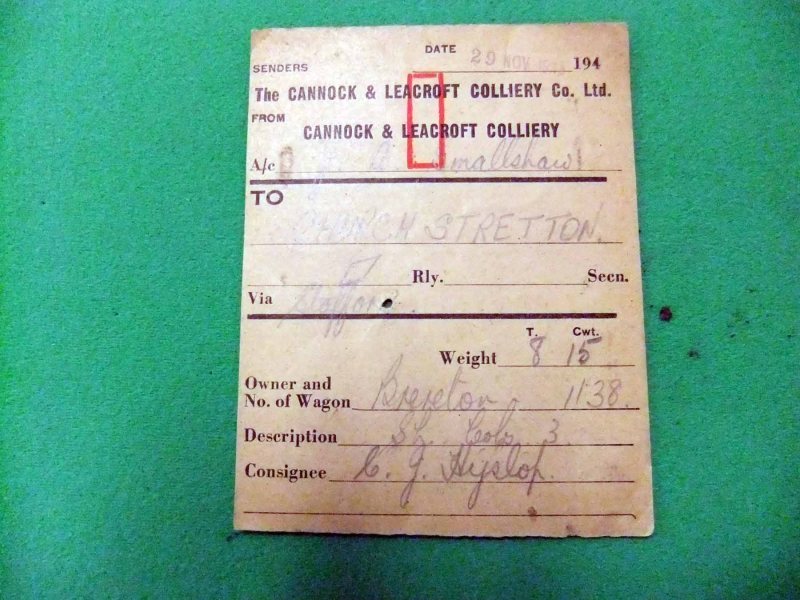 DATE 29 NOV 194
SENDERS
The CANNOCK & LEACROFT COLLIERY Co. Ltd.
FROM
CANNOCK & LEACROFT COLLIERY
A/c Smallshaw
TO
CHURCH STRETTON.
Rly. Secn.
Via Stafford.
T. Cwt.
Weight 8 15
Owner and
No. of Wagon Brereton 1138.
Description 3
Consignee C. J. Hyslop.